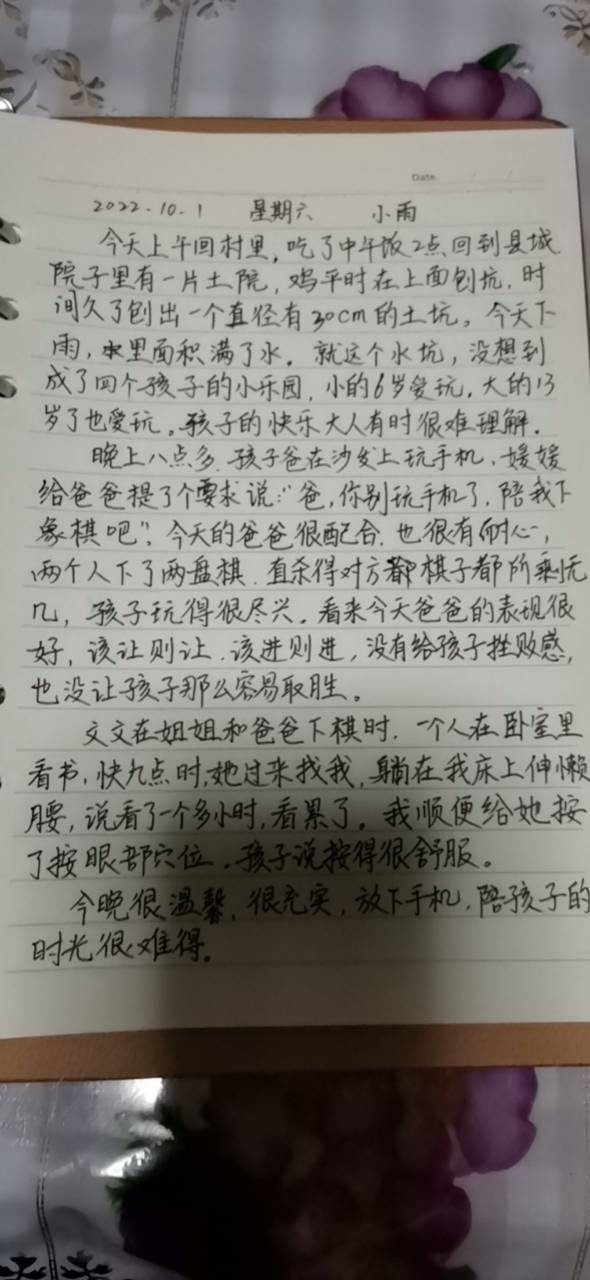 Date
2022.10.1 星期六 小雨
今天上午回村里，吃了中午饭2点回到县城
院子里有一片土院，鸡平时在上面刨坑，时
间久了刨出一个直径有30cm的土坑。今天下
雨，里面积满了水。就这个水坑，没想到
成了四个孩子的小乐园，小的6岁爱玩，大的13
岁了也爱玩。孩子的快乐大人有时很难理解。
晚上八点多，孩子爸在沙发上玩手机，媛媛
给爸爸提了个要求说：“爸，你别玩手机了，陪我下
象棋吧”。今天的爸爸很配合，也很有耐心，
两个人下了两盘棋，直杀得对方棋子都所剩无
几，孩子玩得很尽兴。看来今天爸爸的表现很
好，该让则让，该进则进，没有给孩子挫败感，
也没让孩子那么容易取胜。
文文在姐姐和爸爸下棋时，一个人在卧室里
看书，快九点时，她过来找我，躺在我床上伸懒
腰，说看了一个多小时，看累了。我顺便给她按
了按眼部穴位，孩子说按得很舒服。
今晚很温馨，很充实，放下手机，陪孩子的
时光很难得。